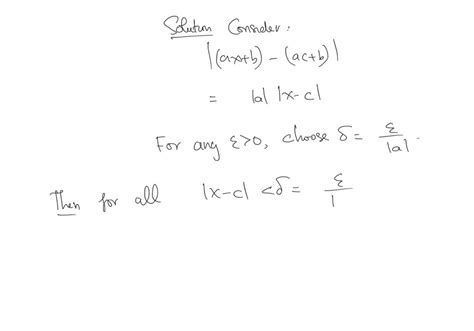 Solution Consider:
|(ax+b) - (ac+b)|
= |a| |x-c|
For any ε>0, choose δ = ε/|a|.
Then for all |x-c| <δ = ε/|